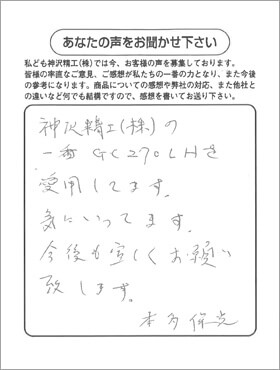 あなたの声をお聞かせ下さい
私ども神沢精工(株)では今、お客様の声を募集しております。
皆様の率直なご意見、ご感想が私たちの一番の力となり、また今後
の参考になります。商品についての感想や弊社の対応、また他社と
の違いなど何でも結構ですので、感想を書いてお送り下さい。
神沢精工(株)の
一番GC270LHを
愛用してます。
気にいってます。
今後も宜しくお願い
致します。
本多